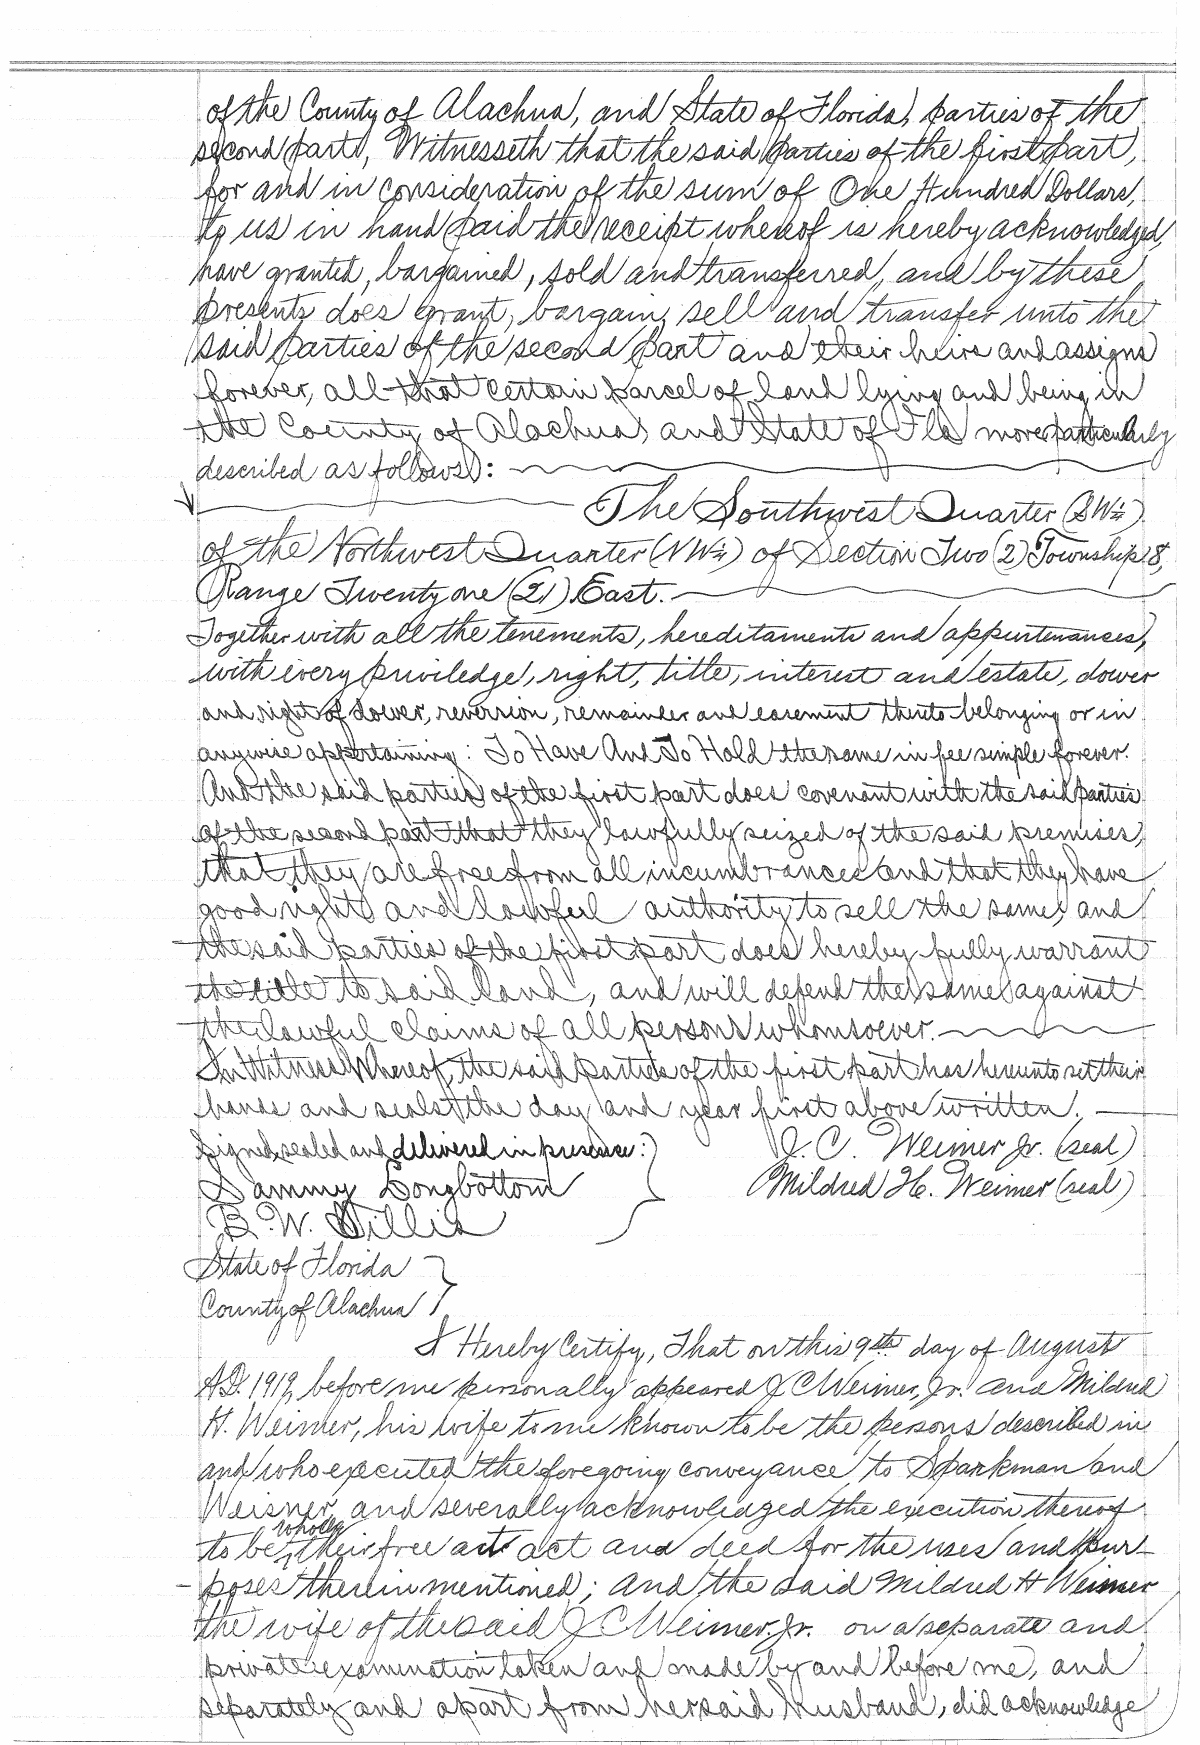 of the County of Alachua, and State of Florida, parties of the
second part, Witnesseth that the said parties of the first part,
for and in consideration of the sum of One Hundred Dollars,
to us in hand paid the receipt whereof is hereby acknowledged,
have granted, bargained, sold and transferred, and by these
presents does grant, bargain, sell and transfer unto the
said parties of the second part and their heirs and assigns
forever, all that certain parcel of land lying and being in
the County of Alachua and State of Fla more particularly
described as follows:
The Southwest Quarter (SW¼)
of the Northwest Quarter (NW¼) of Section Two (2) Township 8,
Range Twenty one (21) East.
Together with all the tenements, hereditaments and appurtenances,
with every priviledge, right, title, interest and estate, dower
and right of dower, reversion, remainder and easement thereto belonging or in
anywise appertaining: To Have And To Hold the same in fee simple forever.
And the said parties of the first part does covenant with the said parties
of the second part that they lawfully seized of the said premises,
that they are free from all incumbrances and that they have
good right and lawful authority to sell the same, and
the said parties of the first part does hereby fully warrant
the title to said land, and will defend the same against
the lawful claims of all persons whomsoever.
In Witness Whereof, the said parties of the first part has hereunto set their
hands and seals the day and year first above written.
Signed, sealed and delivered in presence: J. C. Weimer Jr. (seal)
Sammy Longbottom Mildred H. Weimer (seal)
B. W. Gillis
State of Florida
County of Alachua
I Hereby Certify, That on this 9th day of August
A.D. 1919, before me personally appeared J C Weimer, Jr. and Mildred
H. Weimer, his wife to me known to be the persons described in
and who executed the foregoing conveyance to Sparkman and
Weisner, and severally acknowledged the execution thereof
to be wholly their free act act and deed for the uses and pur-
poses therein mentioned; And the said Mildred H Weimer
the wife of the said J C Weimer. Jr. on a separate and
private examination taken and made by and before me, and
separately and apart from her said husband, did acknowledge